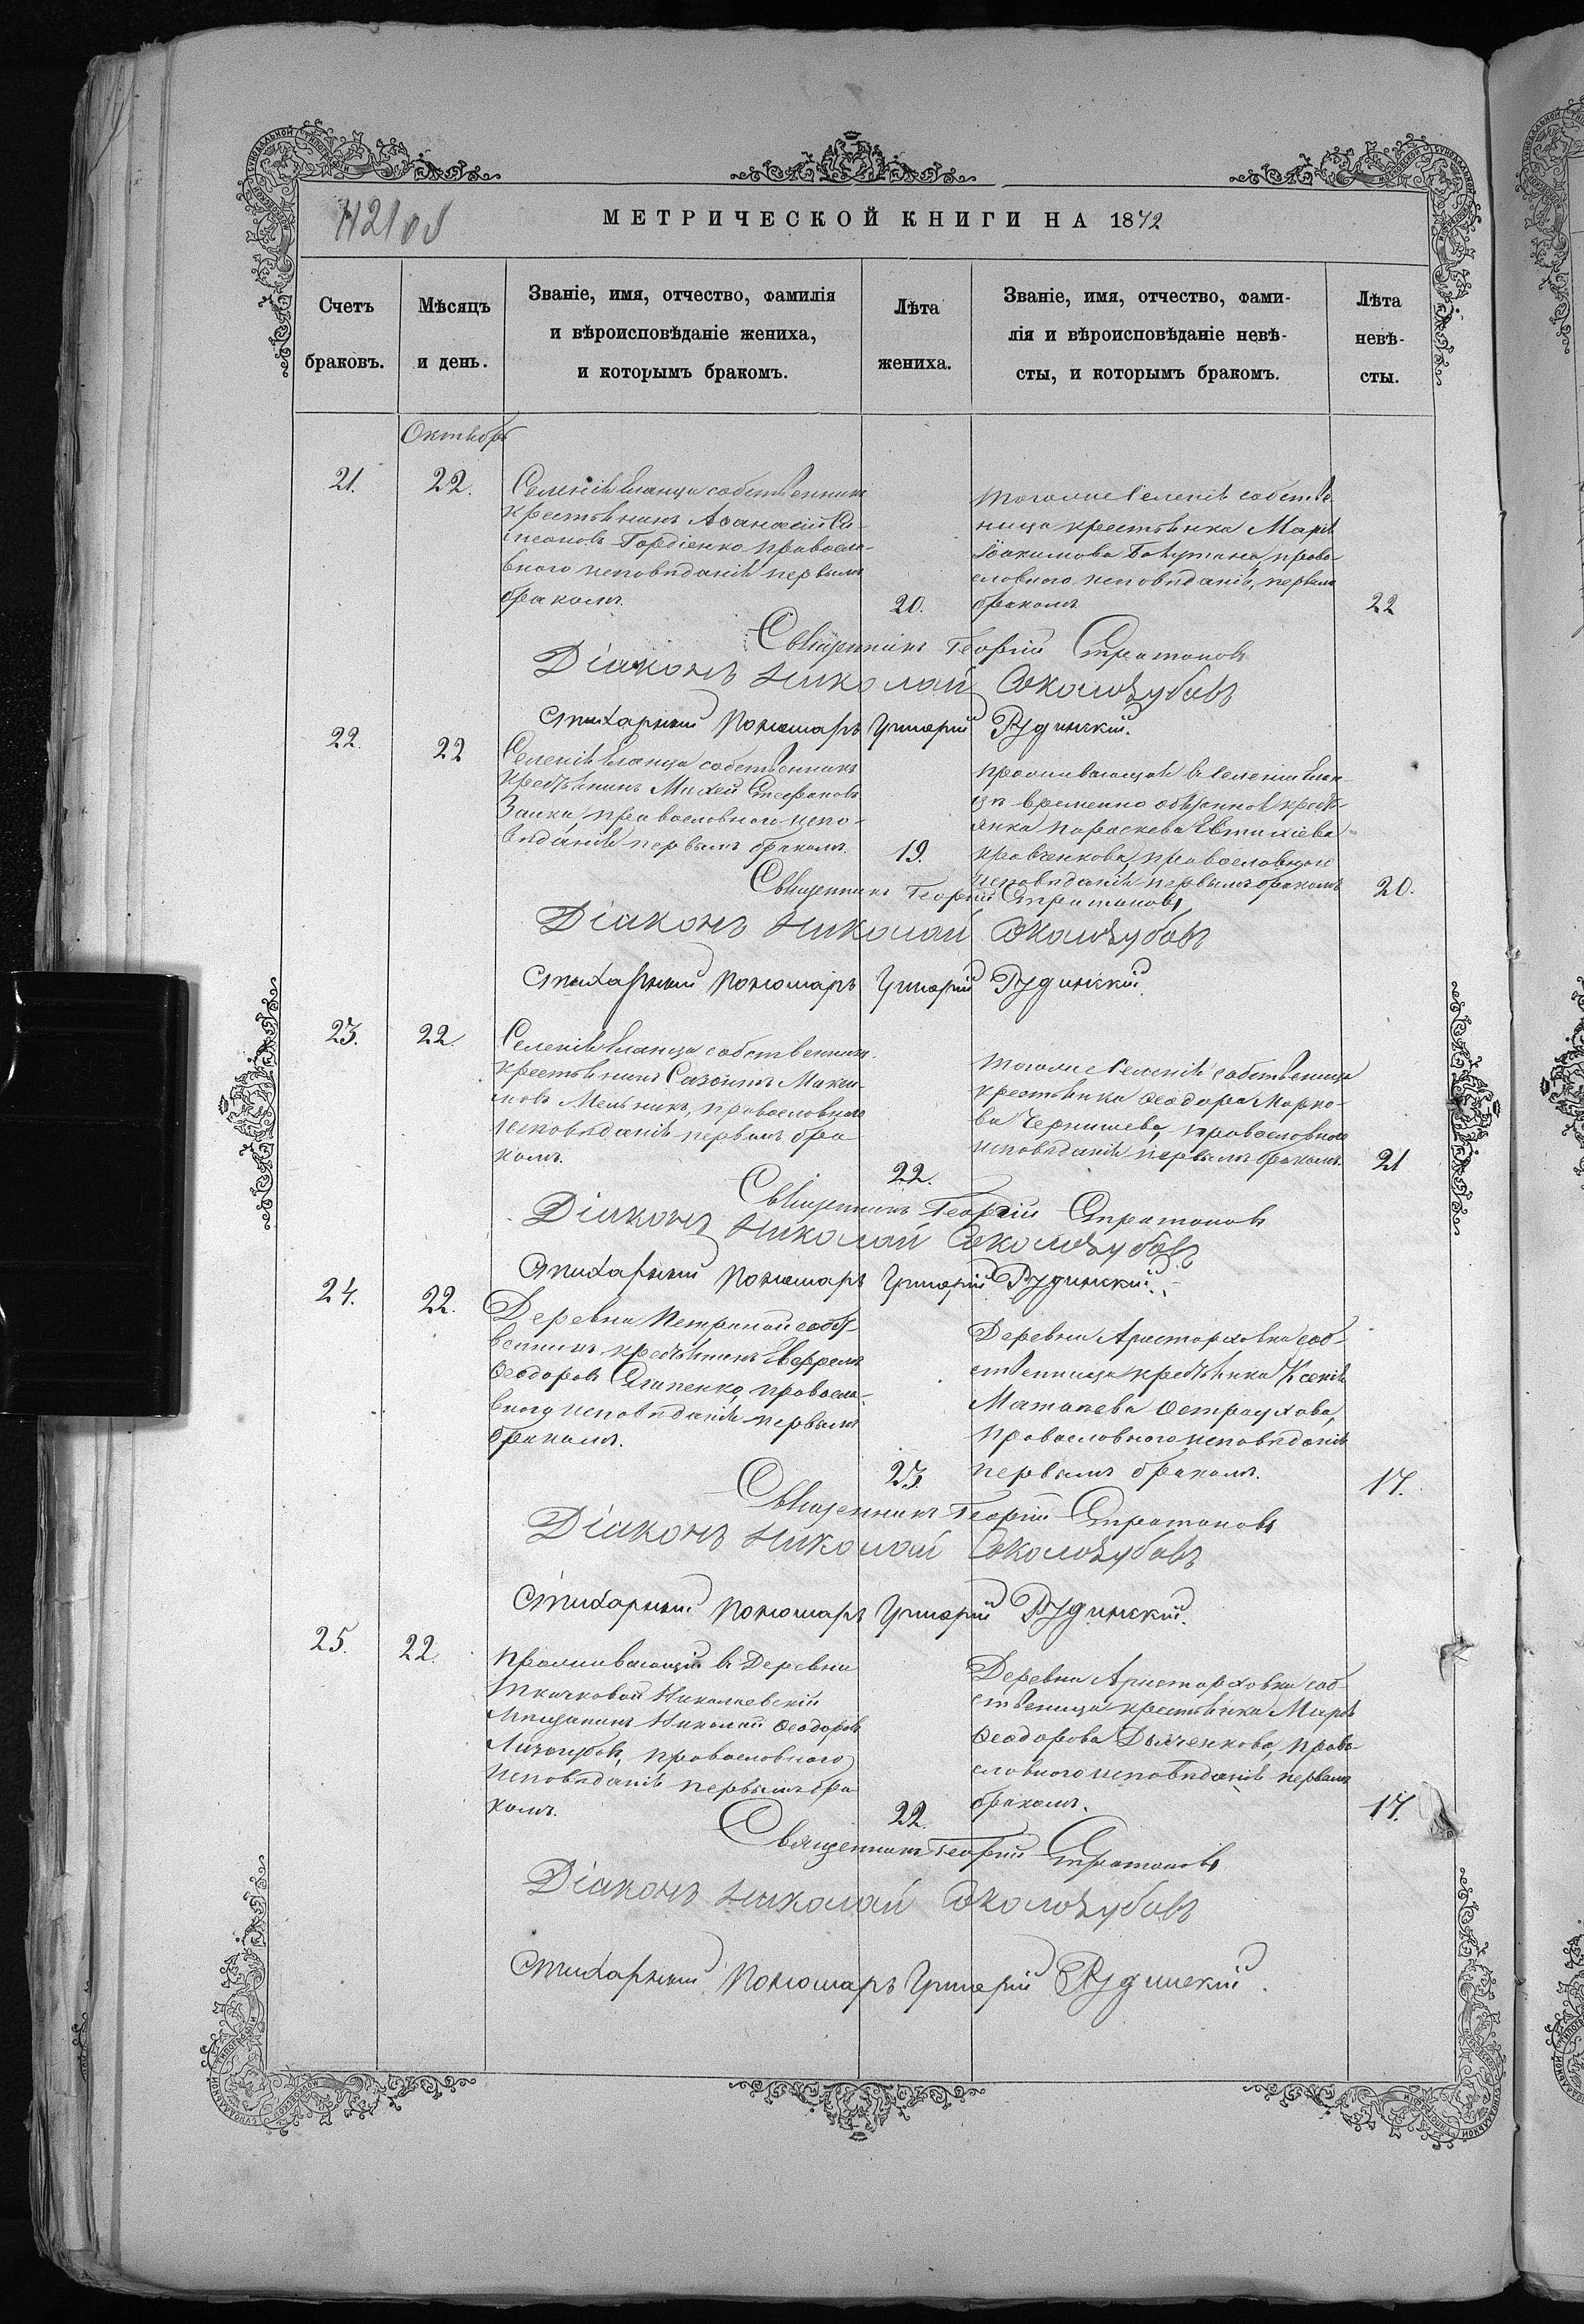 МЕТРИЧЕСКОЙ КНИГИ НА 1872
Счетъ браковъ.
Мѣсяцъ и день.
Званіе, имя, отчество, фамилія
и вѣроисповѣданіе жениха,
и которымъ бракомъ.
Лѣта жениха.
Званіе, имя, отчество, фами-
лія и вѣроисповѣданіе невѣ-
сты, и которымъ бракомъ.
Лѣта невѣ-
сты.
Октябрь
21.
22.
Селенія Еланца собственникъ
крестьянинъ Аѳанасій
Гордіенко, правосла-
внаго исповѣданія первымъ
бракомъ.
20.
тогоже селенія собстве
ница крестьянка Марія
Іоакимова право
славнаго исповѣданія, первымъ
бракомъ
22
Священникъ Георгій Стратоновъ
Діаконъ Николай Соколозубовъ
Стихарный Пономарь Григорій Рудинскій.
22.
22
Селенія Еланца собственникъ
крестьянинъ Михей Стефановъ
Заика, православнаго испо-
вѣданія первымъ бракомъ.
19.
проживающая въ селеніи Елан-
цѣ временно обязанная крест-
янка Параскева Евтихіева
Кравченкова, православнаго
исповѣданія первымъ бракомъ
20.
Священникъ Георгій Стратоновъ
Діаконъ Николай Соколозубовъ
Стихарный Пономарь Григорій Рудинскій.
23.
22.
Селенія Еланца собственникъ
крестьянинъ Созонтъ Макси-
мовъ Мельникъ, православнаго
исповѣданія первымъ бра
комъ.
22.
тогоже селенія собственица
крестьянка Ѳеодора Марко-
ва Чернишева, православнаго
исповѣданія первымъ бракомъ.
21
Священникъ Георгій Стратоновъ
Діаконъ Николай Соколозубовъ
Стихарный Пономарь Григорій Рудинскій.
24.
22.
Деревни собст-
венникъ крестьянинъ Евфремъ
Ѳеодоровъ правосла-
внаго исповѣданія первымъ
бракомъ.
23.
Деревни Аристарховки соб-
ственница крестьянка Ксенія
Матвѣева Остроухова,
православнаго исповѣданія
первымъ бракомъ.
17.
Священникъ Георгій Стратоновъ
Діаконъ Николай Соколозубовъ
Стихарный Пономарь Григорій Рудинскій.
25.
22.
проживающій въ Деревни
Ткачковой Николаевскій
Мѣщанинъ Николай Ѳеодоровъ
Лизогубовъ, православнаго
исповѣданія первымъ бра
комъ.
22.
Деревни Аристарховки соб-
ственица крестьянка Марія
Ѳеодорова Дьяченкова, право
славнаго исповѣданія первымъ
бракомъ.
17.
Священникъ Георгій Стратоновъ
Діаконъ Николай Соколозубовъ
Стихарный Пономарь Григорій Рудинскій.